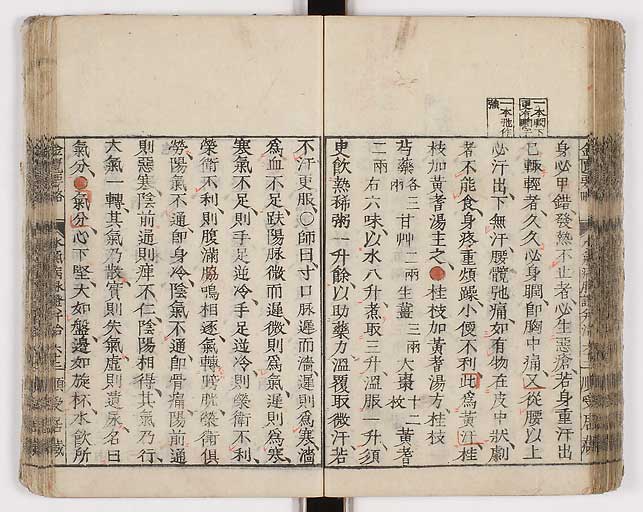 一本輭下
更有輭字
一本弛作
強
身必甲錯發熱不止者必生惡瘡若身重汗出
已輒輕者久久必身瞤瞤即胸中痛又從腰以上
必汗出下無汗腰髖弛痛如有物在皮中狀劇
者不能食身疼重煩躁小便不利此爲黃汗桂
枝加黃耆湯主之 桂枝加黃耆湯方桂枝
芍藥各二兩甘艸二兩生薑三兩大棗十二枚黃耆
二兩右六味以水八升煮取三升溫服一升須
臾飲熱稀粥一升餘以助藥力溫覆取微汗若
不汗更服〇師曰寸口脉遲而濇遲則爲寒濇
爲血不足趺陽脉微而遲微則爲氣遲則爲寒
寒氣不足則手足逆冷手足逆冷則榮衛不利
榮衛不利則腹滿脇鳴相逐氣轉膀胱榮衛俱
勞陽氣不通即身冷陰氣不通即骨痛陽前通
則惡寒陰前通則痺不仁陰陽相得其氣乃行
大氣一轉其氣乃散實則失氣虛則遺尿名曰
氣分 氣分心下堅大如盤邊如旋杯水飲所